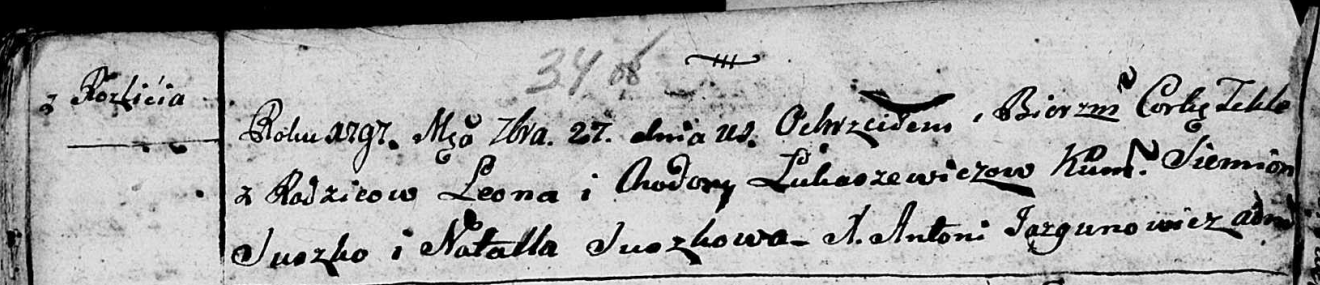 34 об
z Rozlicia
Roku 1797. Msca 7bra. 27. dnia us. Ochrzciłem, i Bierzm Corkę Teklę
z Rodzicow Leona i Chodory Lukaszewiczow Kum. Siemion
Suszko i Natalla Suszkowa - X. Antoni Jazgunowicz adm